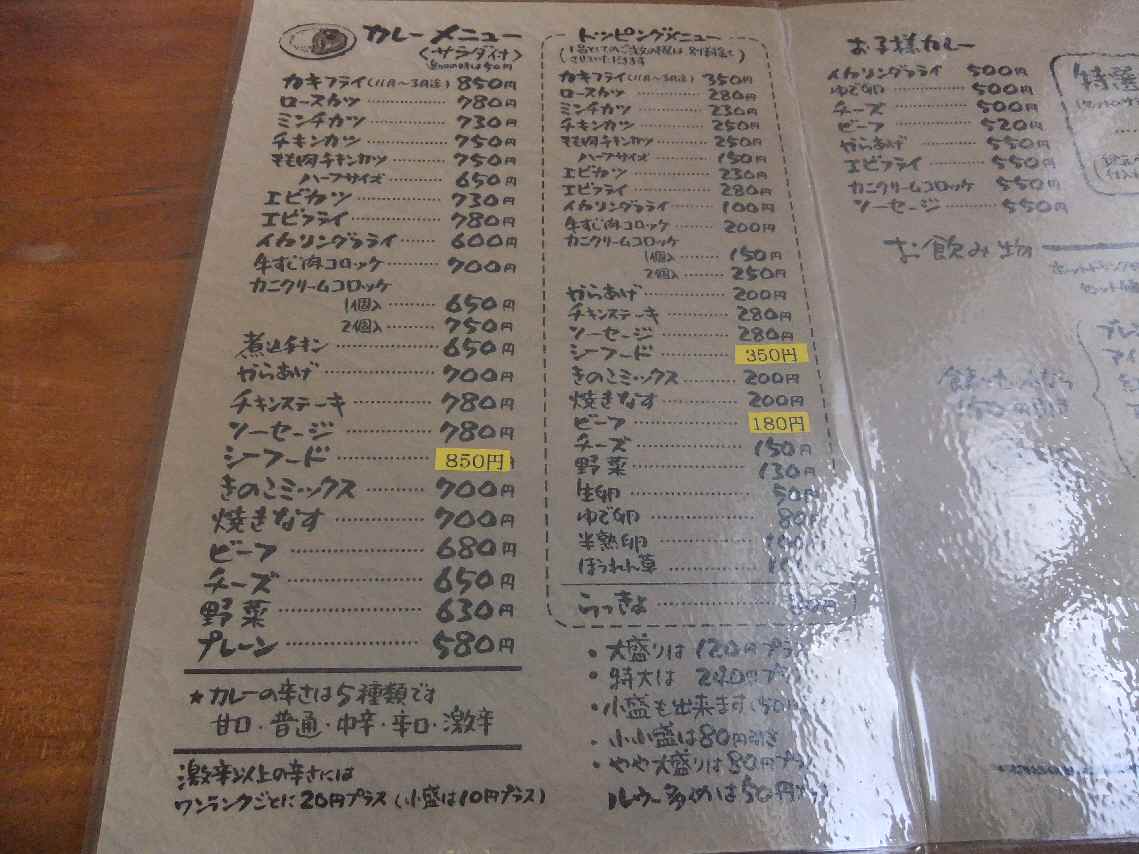 カレーメニュー
<サラダ付>
カキフライ(11月~3月迄) 850円
ロースカツ 780円
ミンチカツ 730円
チキンカツ 750円
もも肉チキンカツ 750円
ハーフサイズ 650円
エビカツ 730円
エビフライ 780円
イカリングフライ 600円
牛すじ肉コロッケ 700円
カニクリームコロッケ
1個入 650円
2個入 750円
煮込チキン 650円
からあげ 700円
チキンステーキ 780円
ソーセージ 780円
シーフード 850円
きのこミックス 700円
焼きなす 700円
ビーフ 680円
チーズ 650円
野菜 630円
プレーン 580円
★カレーの辛さは5種類です
甘口・普通・中辛・辛口・激辛
激辛以上の辛さには
ワンランクごとに20円プラス(小盛は10円プラス)
トッピングメニュー
カキフライ(11月~3月迄) 350円
ロースカツ 280円
ミンチカツ 230円
チキンカツ 250円
もも肉チキンカツ 250円
ハーフサイズ 150円
エビカツ 230円
エビフライ 280円
イカリングフライ 100円
牛すじ肉コロッケ 200円
カニクリームコロッケ
1個入 150円
2個入 250円
からあげ 200円
チキンステーキ 280円
ソーセージ 280円
シーフード 350円
きのこミックス 200円
焼きなす 200円
ビーフ 180円
チーズ 150円
野菜 130円
生卵 50円
ゆで卵 80円
半熟卵
ほうれん草
らっきょ
・大盛りは120円プラス
・特大は240円プラ
・小盛も出来ます(50円
・小小盛は80円引き
・やや大盛りは80円プラ
ルウー多めは50円プラ
お子様カレー
イカリングフライ 500円
ゆで卵 500円
チーズ 500円
ビーフ 520円
からあげ 550円
エビフライ 550円
カニクリームコロッケ 550円
ソーセージ 550円
特選
お飲み物
プレ
アイ